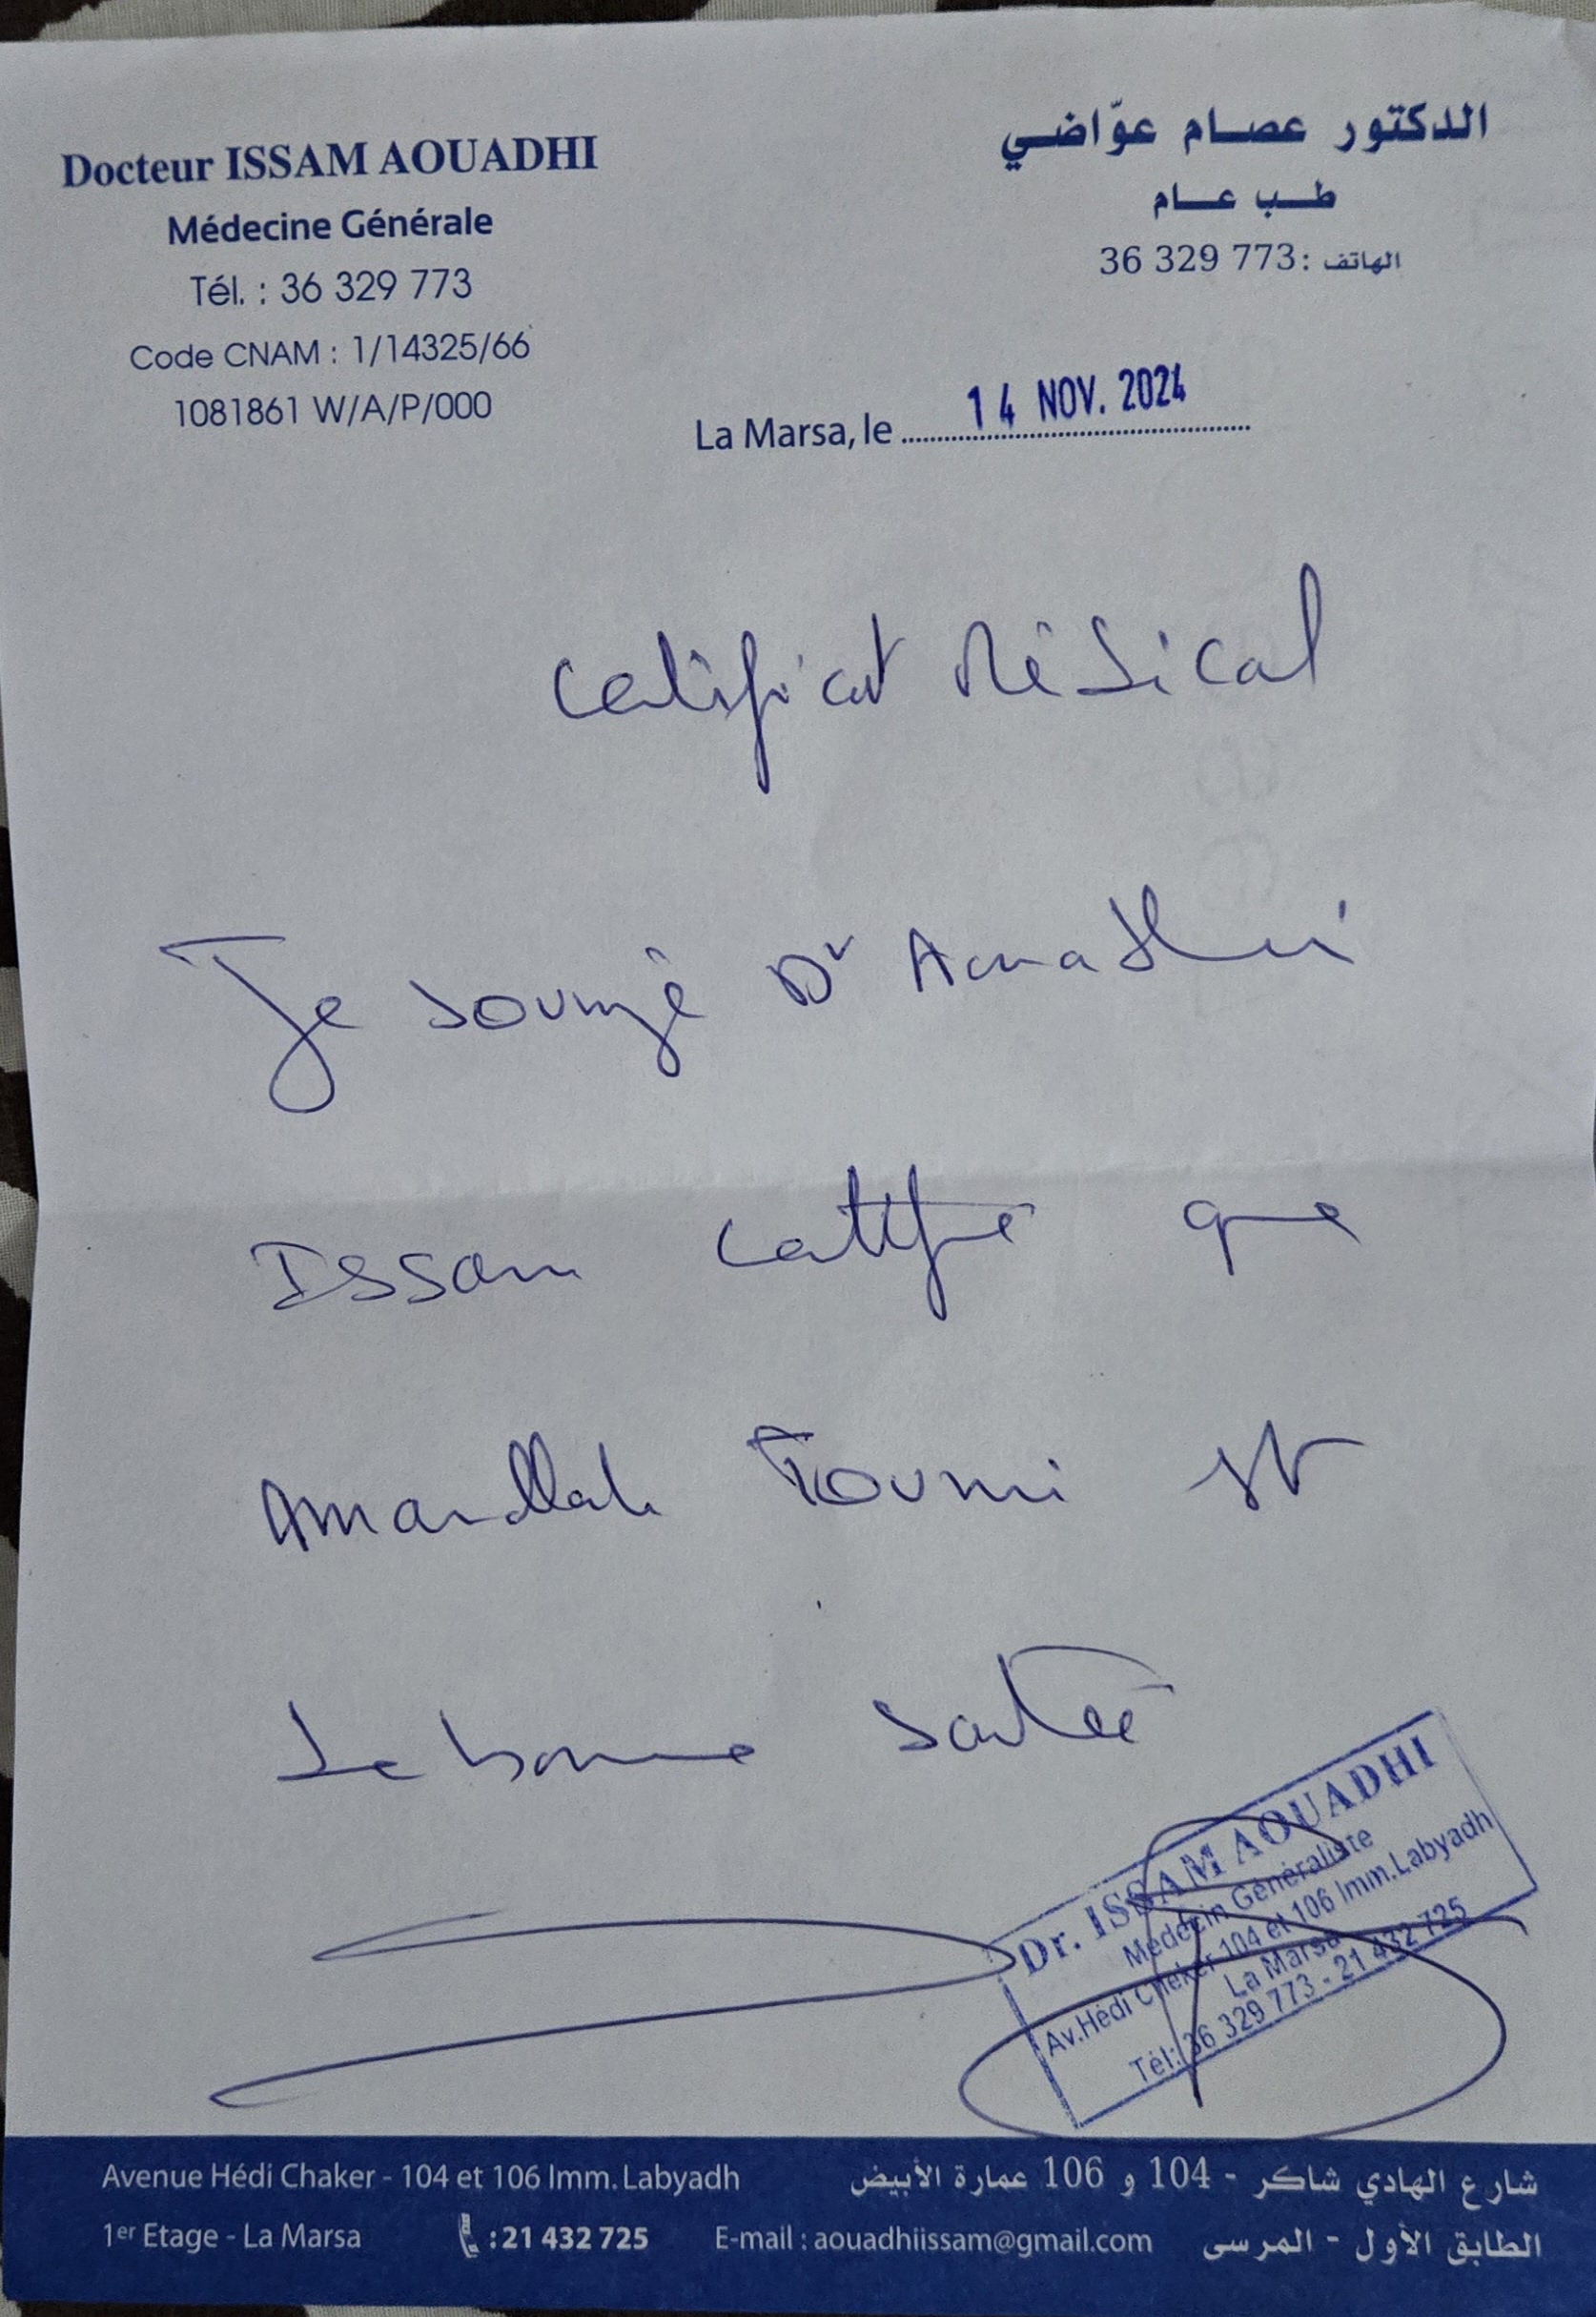 Docteur ISSAM AOUADHI
Médecine Générale
Tél. : 36 329 773
Code CNAM : 1/14325/66
1081861 W/A/P/000
الدكتور عصام عوّاضي
طب عام
الهاتف : 36 329 773
La Marsa, le 14 NOV. 2024
Certificat Médical
Je soussigné Dr Aouadhi
Issam certifie que
Amandllah Toumi est
de bonne santé
Dr. ISSAM AOUADHI
Médecin Généraliste
Av.Hédi Cheker 104 et 106 Imm.Labyadh
La Marsa
Tél: 36 329 773 - 21 432 725
Avenue Hédi Chaker - 104 et 106 Imm. Labyadh
1er Etage - La Marsa : 21 432 725 E-mail : aouadhiissam@gmail.com
شارع الهادي شاكر - 104 و 106 عمارة الأبيض
الطابق الأول - المرسى